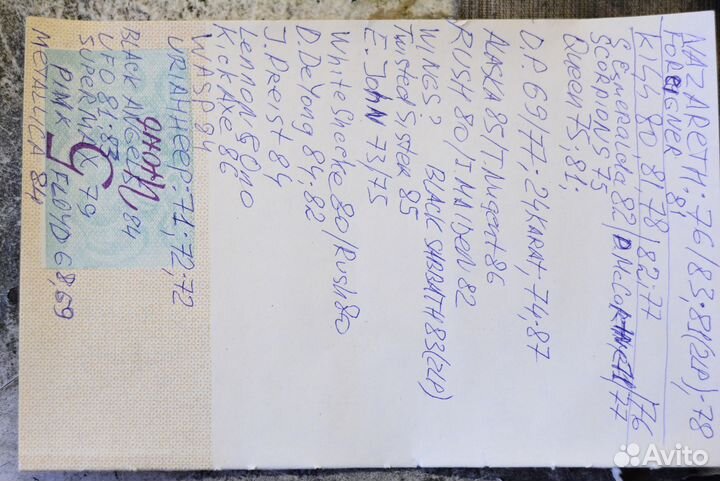 NAZARETH: 76/83,81(2LP),78
FOREIGNER 81
KISS 80,81,78,82,77
Esmeralda 82/P. McCartney 76/77
SCORPIONS 75
Queen 75,81.
D.P 69/77; 24 KARAT, 74,87
ALASKA 85/T. Nugent 86
RUSH 80/I. MAIDEN 82
WINGS? BLACK SABBATH 83(2LP)
Twisted Sister 85
E. John 73/75
White Snake 80/Rush 80
D. DeYong 84,82
J. Priest 84
Lennon & Ono
Kick Axe 86
WASP 84
URIAH HEEP: 71,72,72
BLACK ANGELS 84
UFO 81,83
SUPERMAX 79
PINK FLOYD 68,69
METALLICA 84
Avito